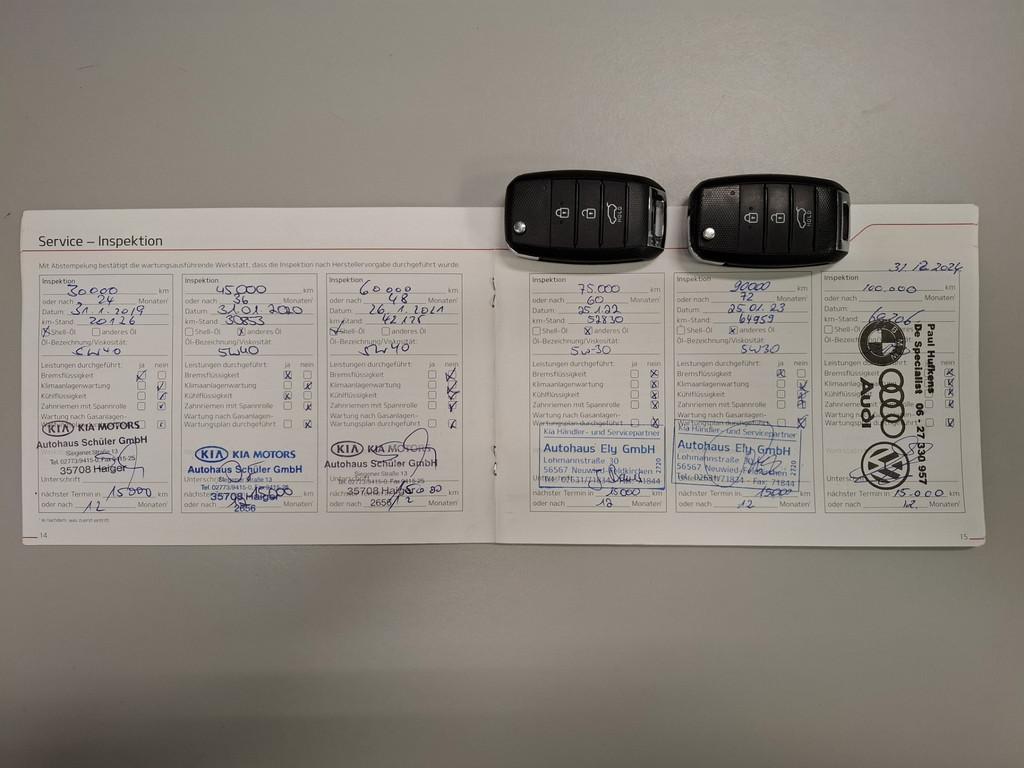 Service – Inspektion
Mit Abstempelung bestätigt die wartungsausführende Werkstatt, dass die Inspektion nach Herstellervorgabe durchgeführt wurde.
Inspektion
30000 km
oder nach 24 Monaten¹
Datum: 31.1.2019
km-Stand: 20126
Shell-Öl anderes Öl
Öl-Bezeichnung/Viskosität:
5W40
Leistungen durchgeführt: ja nein
Bremsflüssigkeit
Klimaanlagenwartung
Kühlflüssigkeit
Zahnriemen mit Spannrolle
Wartung nach Gasanlagen-
KIA KIA MOTORS
Autohaus Schüler GmbH
Siegener Straße 13
Tel. 02773/9415-0, Fax 9415-25
35708 Haiger
Unterschrift
nächster Termin in 15000 km
oder nach 12 Monaten¹
¹ je nachdem, was zuerst eintritt
14
Inspektion
45000 km
oder nach 36 Monaten¹
Datum: 31.01.2020
km-Stand: 30853
Shell-Öl anderes Öl
Öl-Bezeichnung/Viskosität:
5W40
Leistungen durchgeführt: ja nein
Bremsflüssigkeit
Klimaanlagenwartung
Kühlflüssigkeit
Zahnriemen mit Spannrolle
Wartung nach Gasanlagen-
Wartungsplan durchgeführt
KIA KIA MOTORS
Autohaus Schüler GmbH
Siegener Straße 13
Tel. 02773/9415-0, Fax 9415-25
35708 Haiger
nächster Termin in km
oder nach Monaten¹
2656
Inspektion
60000 km
oder nach 48 Monaten¹
Datum: 26.1.2021
km-Stand: 42136
Shell-Öl anderes Öl
Öl-Bezeichnung/Viskosität:
5W40
Leistungen durchgeführt: ja nein
Bremsflüssigkeit
Klimaanlagenwartung
Kühlflüssigkeit
Zahnriemen mit Spannrolle
Wartung nach Gasanlagen-
Wartungsplan durchgeführt
KIA KIA MOTORS
Autohaus Schüler GmbH
Siegener Straße 13
Tel. 02773/9415-0, Fax 9415-25
35708 Haiger
nächster Termin in km
oder nach 12 Monaten¹
2656
HOLD
HOLD
Inspektion
75.000 km
oder nach 60 Monaten¹
Datum: 25.1.22
km-Stand: 52830
Shell-Öl anderes Öl
Öl-Bezeichnung/Viskosität:
5W-30
Leistungen durchgeführt: ja nein
Bremsflüssigkeit
Klimaanlagenwartung
Kühlflüssigkeit
Zahnriemen mit Spannrolle
Wartung nach Gasanlagen-
Wartungsplan durchgeführt
Kia Händler- und Servicepartner
Autohaus Ely GmbH
Lohmannstraße 30
56567 Neuwied-Feldkirchen
Tel. 02631/71834 - Fax: 71844
2720
nächster Termin in 15000 km
oder nach 12 Monaten¹
Inspektion
90000 km
oder nach 72 Monaten¹
Datum: 25.01.23
km-Stand: 64959
Shell-Öl anderes Öl
Öl-Bezeichnung/Viskosität:
5W30
Leistungen durchgeführt: ja nein
Bremsflüssigkeit
Klimaanlagenwartung
Kühlflüssigkeit
Zahnriemen mit Spannrolle
Wartung nach Gasanlagen-
Wartungsplan durchgeführt
Kia Händler- und Servicepartner
Autohaus Ely GmbH
Lohmannstraße 30
56567 Neuwied-Feldkirchen
Tel. 02631/71834 - Fax: 71844
2720
nächster Termin in 15000 km
oder nach 12 Monaten¹
31.12.2024
Inspektion
100.000 km
oder nach Monaten¹
Datum:
km-Stand:
Shell-Öl
Öl-Bezeichnung
Leistungen durchgeführt
Bremsflüssigkeit
Klimaanlagenwartung
Kühlflüssigkeit
Zahnriemen mit
Wartung nach
Wartungsplan
Audi
Paul Hufkens
De Specialist 06 - 27 330 957
nächster Termin in 15.000 km
oder nach 12 Monaten¹
15